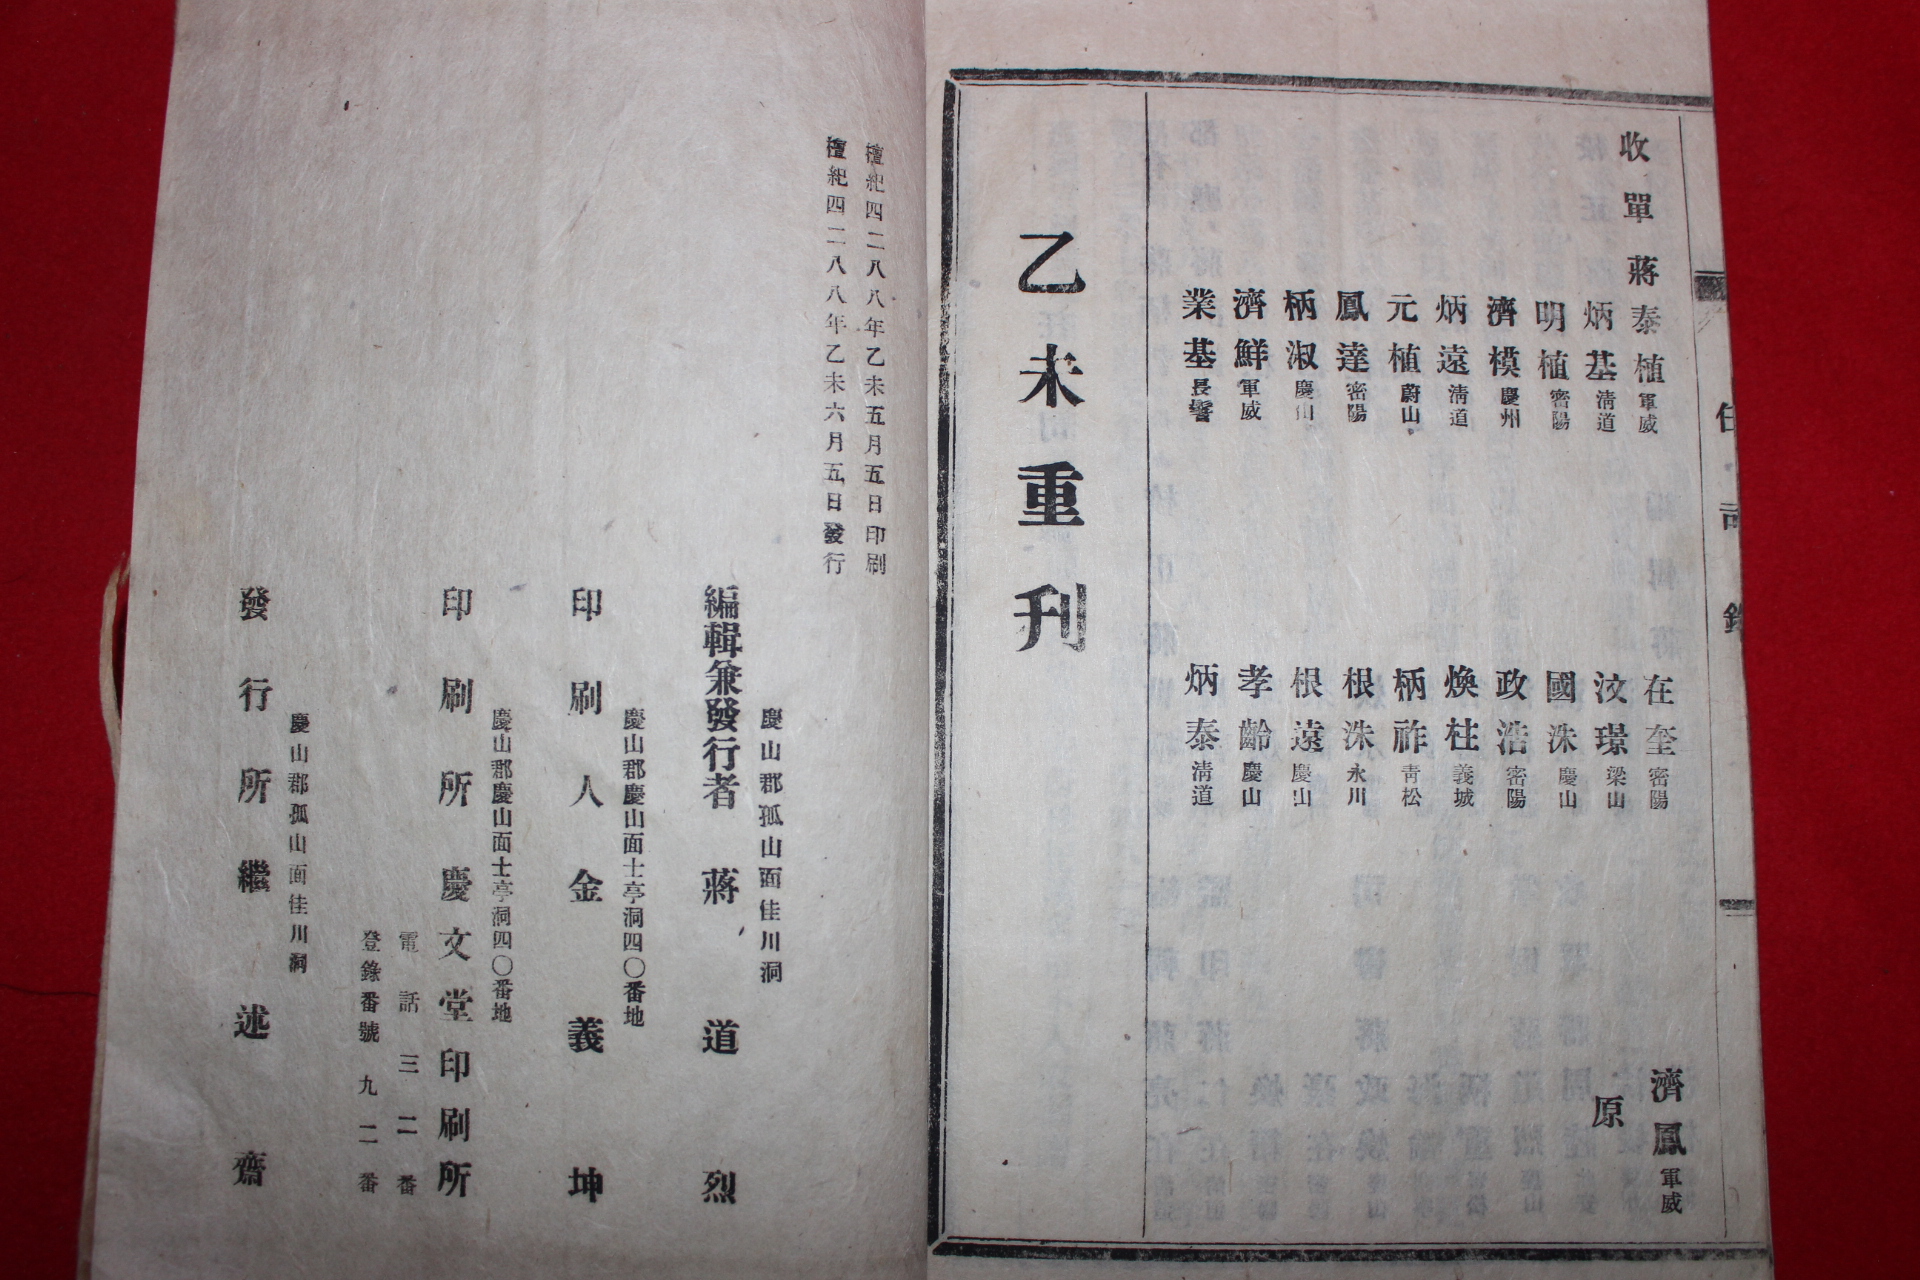 收單蔣泰植軍威
在奎密陽
濟鳳軍威
炳基淸道
汶璟梁山
原
明植密陽
國洙慶山
濟模慶州
政浩密陽
炳遠淸道
煥柱義城
元植蔚山
柄祚靑松
鳳達密陽
根洙永川
柄淑慶山
根遠慶山
濟鮮軍威
孝齡慶山
業基長鬐
炳泰淸道
乙未重刋
檀紀四二八八年乙未五月五日印刷
檀紀四二八八年乙未六月五日發行
慶山郡孤山面佳川洞
編輯兼發行者 蔣道烈
慶山郡慶山面士亭洞四〇番地
印刷人 金義坤
慶山郡慶山面士亭洞四〇番地
印刷所 慶文堂印刷所
電話三二番
登錄番號九二番
慶山郡孤山面佳川洞
發行所 繼述齋